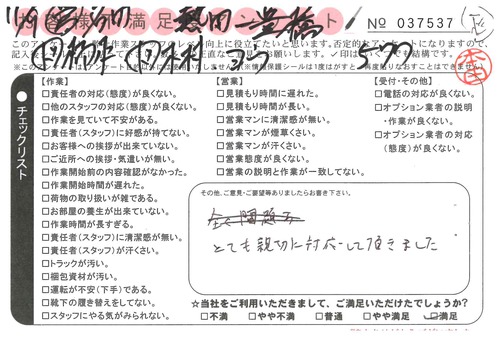 № 037537
チェックリスト
【作業】
□責任者の対応(態度)が良くない。
□他のスタッフの対応(態度)が良くない。
□作業を見ていて不安がある。
□責任者(スタッフ)に好感が持てない。
□お客様への挨拶が出来ていない。
□ご近所への挨拶・気遣いが無い。
□作業開始前の内容確認がなかった。
□作業開始時間が遅れた。
□荷物の取り扱いが雑である。
□お部屋の養生が出来ていない。
□作業時間が長すぎる。
□責任者(スタッフ)に清潔感が無い。
□責任者(スタッフ)が汗くさい。
□トラックが汚い。
□梱包資材が汚い。
□運転が不安(下手)である。
□靴下の履き替えをしてない。
□スタッフにやる気がみられない。
【営業】
□見積もり時間に遅れた。
□見積もり時間が長い。
□営業マンに清潔感が無い。
□営業マンが煙草くさい。
□営業マンが汗くさい。
□営業態度が良くない。
□営業の説明と作業が一致してない。
【受付・その他】
□電話の対応が良くない。
□オプション業者の説明
・作業が良くない。
□オプション業者の対応
(態度)が良くない。
その他、ご意見・ご要望等ありましたらお書き下さい。
とても親切に対応して頂きました
☆当社をご利用いただきまして、ご満足いただけたでしょうか?
□不満 □やや不満 □普通 □やや満足 □満足